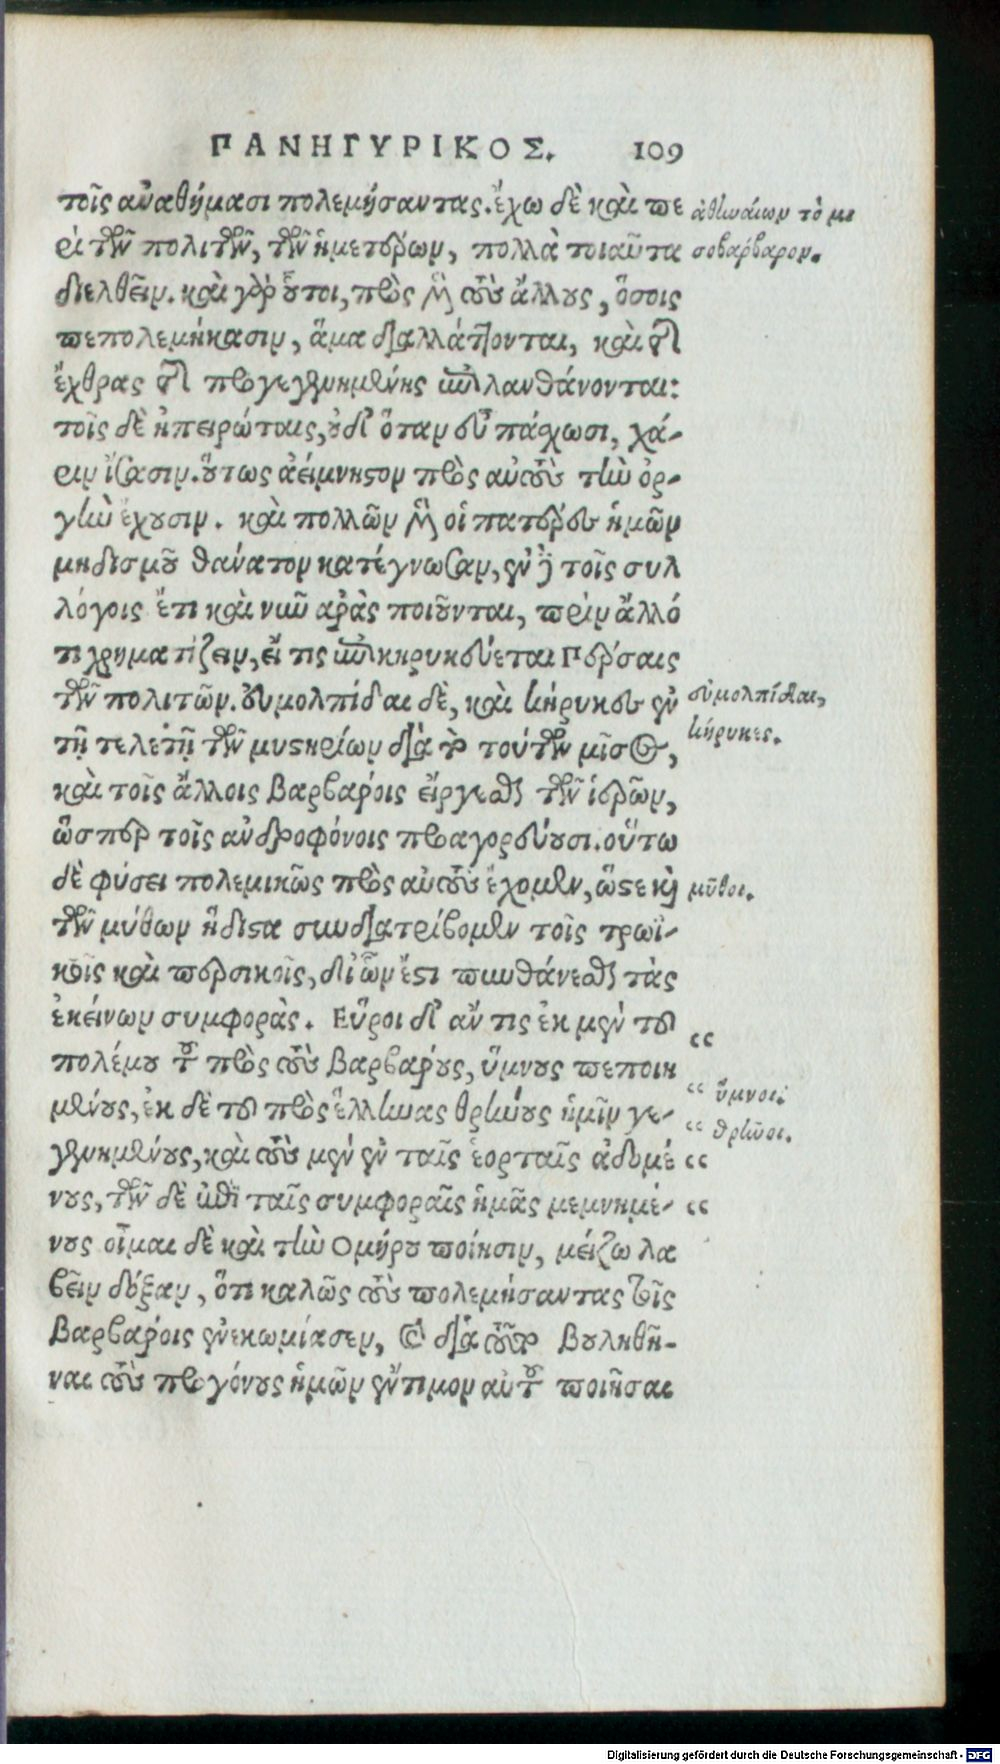 ΠΑΝΗΓΥΡΙΚΟΣ. 109
τοῖς ἀναθήμασι πολεμήσαντας. ἔχω δὲ καὶ πε
ρὶ τῶν πολιτῶν, τῶν ἡμετέρων, πολλὰ τοιαῦτα
διελθεῖν. καὶ γὰρ οὗτοι, πρὸς μὲν τοὺς ἄλλους, ὅσοις
πεπολεμήκασιν, ἅμα διαλλάττονται, καὶ τῆς
ἔχθρας τῆς προγεγενημένης ἐπιλανθάνονται:
τοῖς δὲ ἠπειρώταις, οὐδ' ὅταν εὖ πάχωσι, χά-
ριν ἴσασιν. οὕτως ἀείμνηστον πρὸς αὐτοὺς τὴν ὀρ-
γὴν ἔχουσιν. καὶ πολλῶν μὲν οἱ πατέρες ἡμῶν
μηδισμοῦ θάνατον κατέγνωσαν, ἐν δὲ τοῖς συλ
λόγοις ἔτι καὶ νῦν ἀρὰς ποιοῦνται, πρὶν ἄλλό
τι χρηματίζειν, εἴ τις ἐπικηρυκεύεται Πέρσαις
τῶν πολιτῶν. Εὐμολπίδαι δὲ, καὶ κήρυκες ἐν
τῇ τελετῇ τῶν μυστηρίων διὰ τὸ τούτων μῖσος,
καὶ τοῖς ἄλλοις βαρβάροις εἴργεσθαι τῶν ἱερῶν,
ὥσπερ τοῖς ἀνδροφόνοις προαγορεύουσι. οὕτω
δὲ φύσει πολεμικῶς πρὸς αὐτοὺς ἔχομεν, ὥστε καὶ
τῶν μύθων ἥδιστα συνδιατρίβομεν τοῖς τρωϊ-
κοῖς καὶ περσικοῖς, δι' ὧν ἔστι πυνθάνεσθαι τὰς
ἐκείνων συμφορὰς. Εὕροι δ' ἄν τις ἐκ μὲν τοῦ
πολέμου τοῦ πρὸς τοὺς βαρβάρους, ὕμνους πεποιη
μένους, ἐκ δὲ τοῦ πρὸς ἕλληνας θρήνους ἡμῖν γε-
γενημένους, καὶ τοὺς μὲν ἐν ταῖς ἑορταῖς ἀδομέ
νους, τῶν δὲ ἐπὶ ταῖς συμφοραῖς ἡμᾶς μεμνημέ-
νους οἶμαι δὲ καὶ τὴν Ομήρου ποίησιν, μείζω λα
βεῖν δόξαν, ὅτι καλῶς τοὺς πολεμήσαντας τοῖς
βαρβάροις ἐνεκωμίασεν, καὶ διὰ τοῦτο βουληθῆ-
ναι τοὺς προγόνους ἡμῶν ἔντιμον αὐτοῦ ποιῆσαι
ἀθηναίων τὸ μι
σοβάρβαρον.
εὐμολπίδαι,
κήρυκες.
μῦθοι.
ὕμνοι:
θρῆνοι.
Digitalisierung gefördert durch die Deutsche Forschungsgemeinschaft - DFG